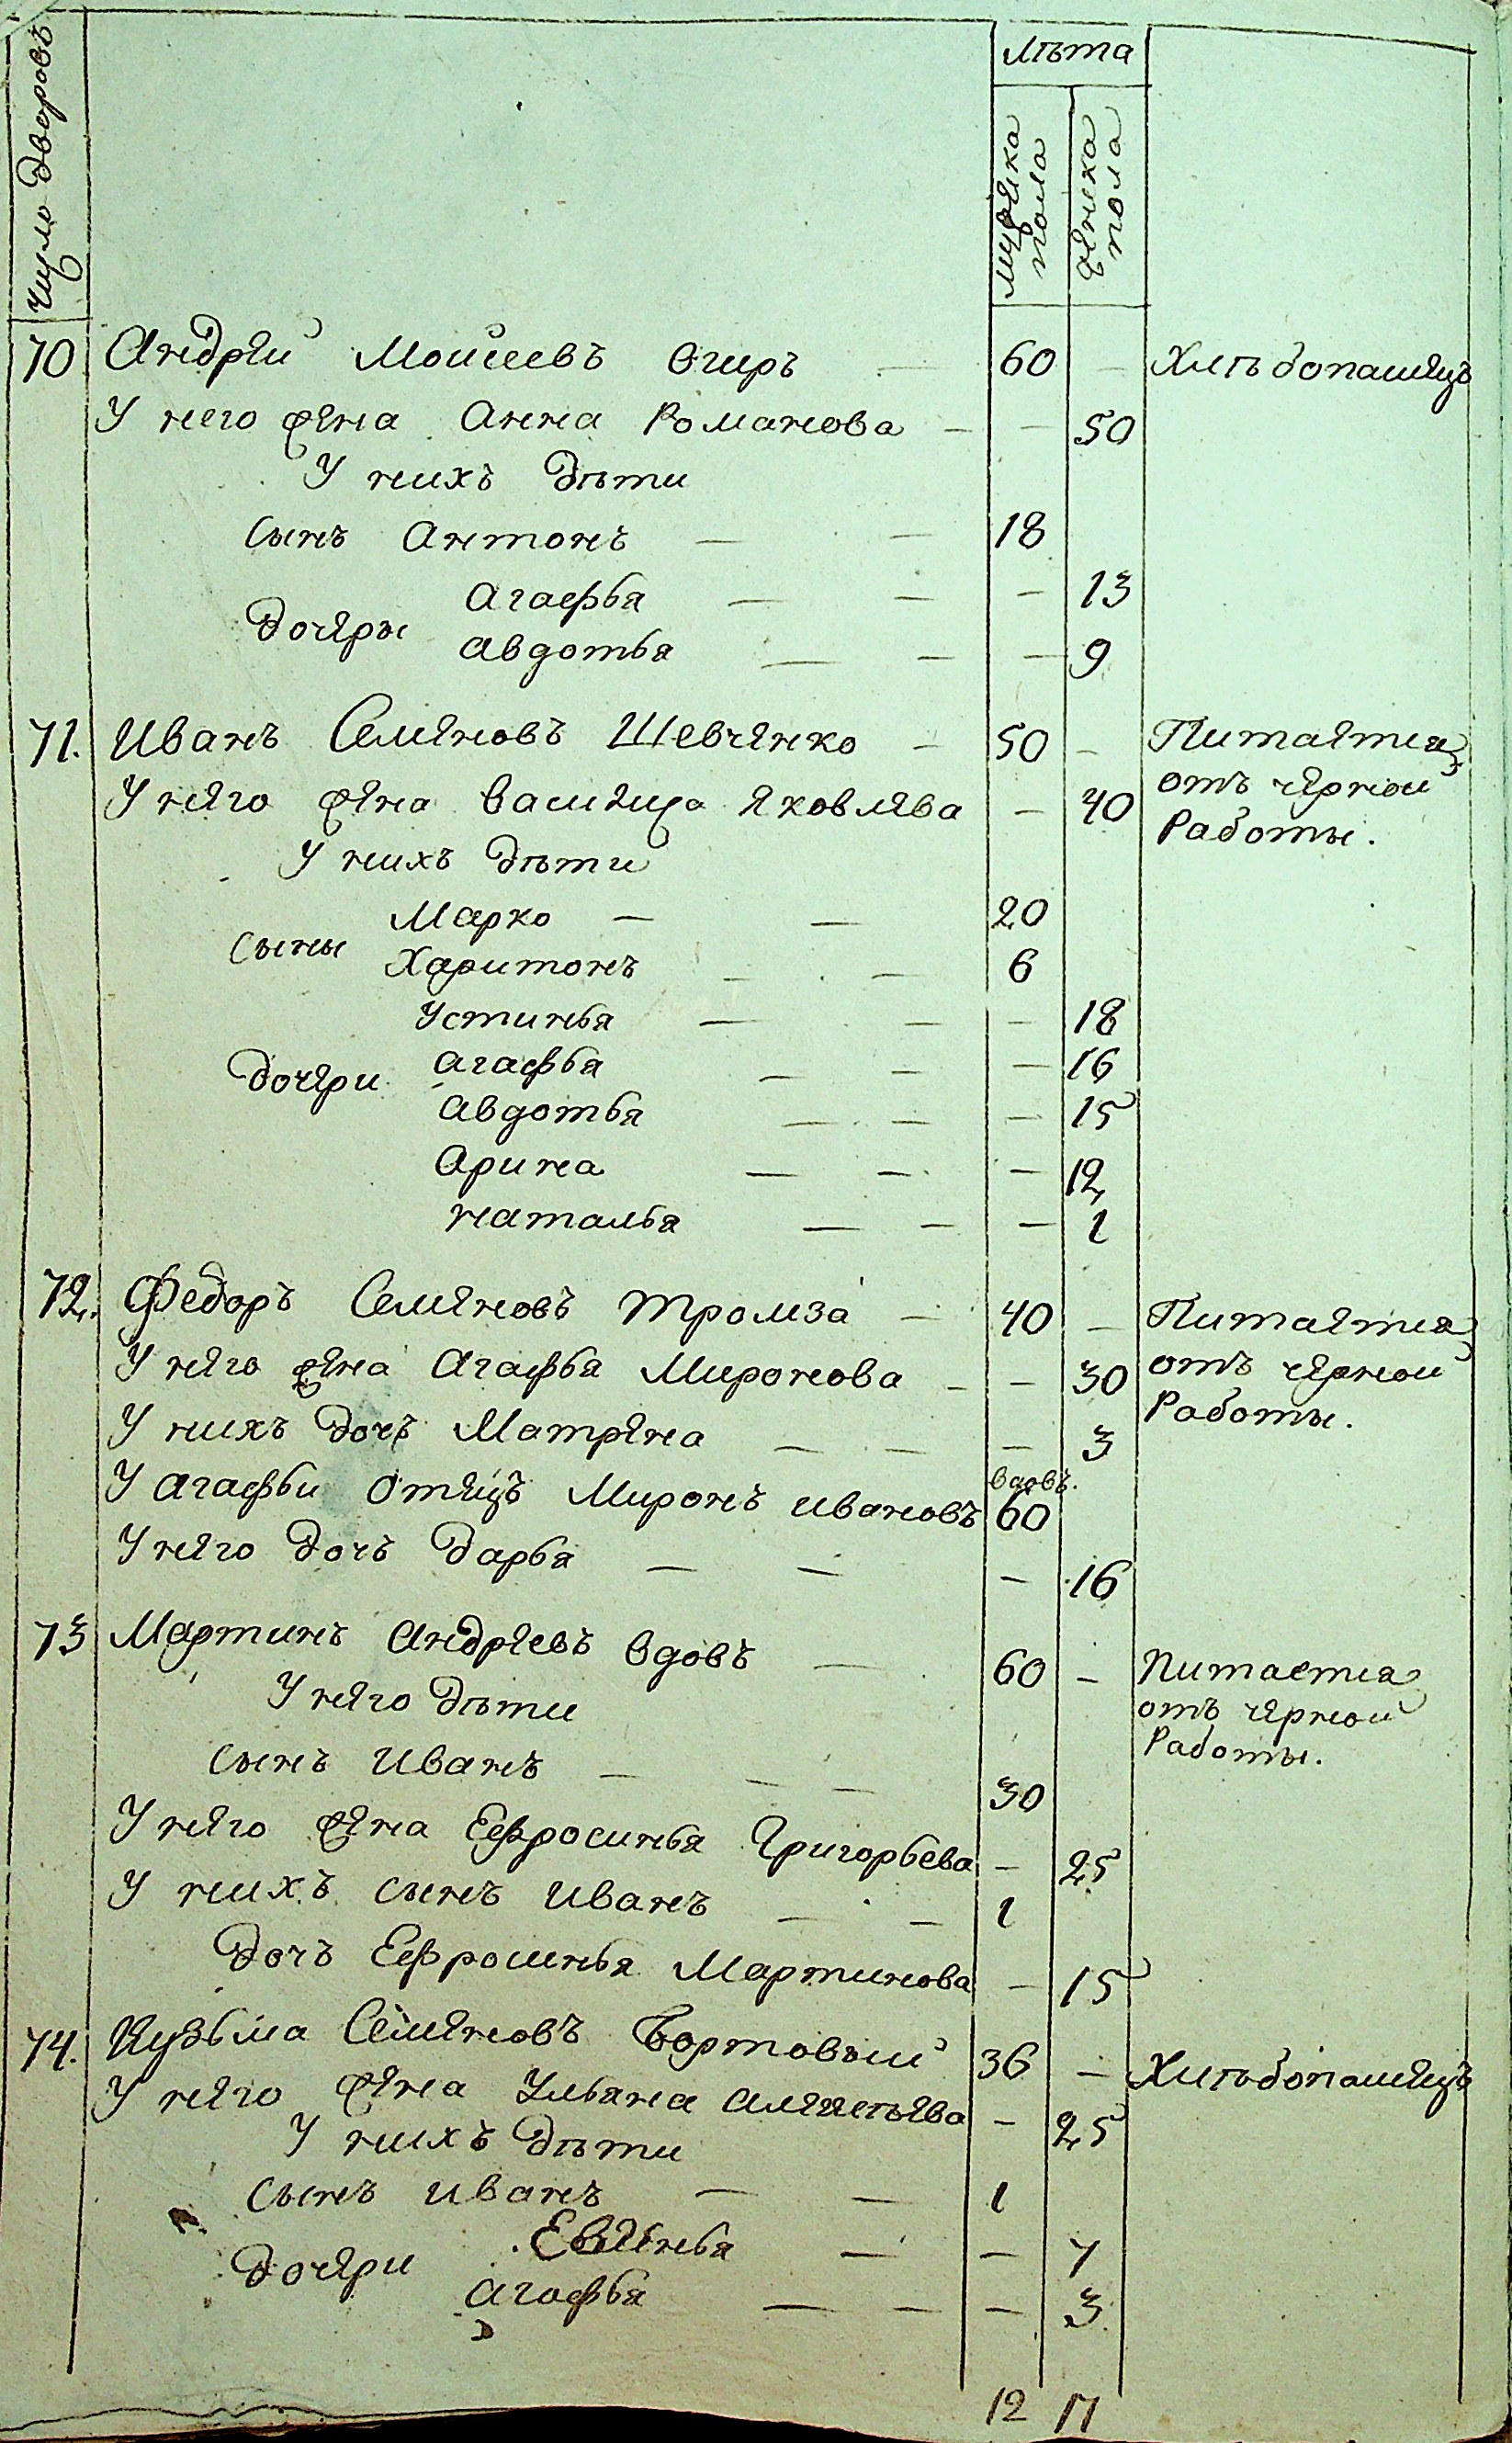 Число дворовъ
Лѣта
Мужска пола
Женска пола
70 Андрей Моисеевъ Огиръ — 60 — Хлѣбопашецъ
У него жена Анна Романова — — 50
У нихъ дѣти
Сынъ Антонъ — — 18
Агафья — — — 13
дочеры
Авдотья — — — 9
71. Иванъ Семеновъ Шевченко — 50 — Питается
У него жена Василиса Яковлева — 40 отъ черной
Работы.
У нихъ дѣти
Марко — — 20
Сыны
Харитонъ — — 6
Устинья — — — 18
дочери Агафья — — — 16
Авдотья — — — 15
Орина — — — 12
Наталья — — — 1
72. Федоръ Семеновъ Тромза — 40 — Питается
У него жена Агафья Миронова — — 30 отъ черной
Работы.
У нихъ дочь Матрена — — — 3
вдовъ.
У Агафьи отецъ Миронъ Ивановъ 60
У него дочь Дарья — — — 16
73 Мартинъ Андреевъ вдовъ — 60 — Питается
отъ черной
У него дѣти
Работы.
Сынъ Иванъ — — — 30
У него жена Ефросинья Григорьева — 25
У нихъ сынъ Иванъ — — 1
Дочь Ефросинья Мартинова — 15
74. Кузьма Семеновъ Бортовый 36 — Хлѣбопашецъ
У него жена Ульяна — 25
У нихъ дѣти
Сынъ Иванъ — — 1
— — 7
дочери
Агафья — — — 3
12 17